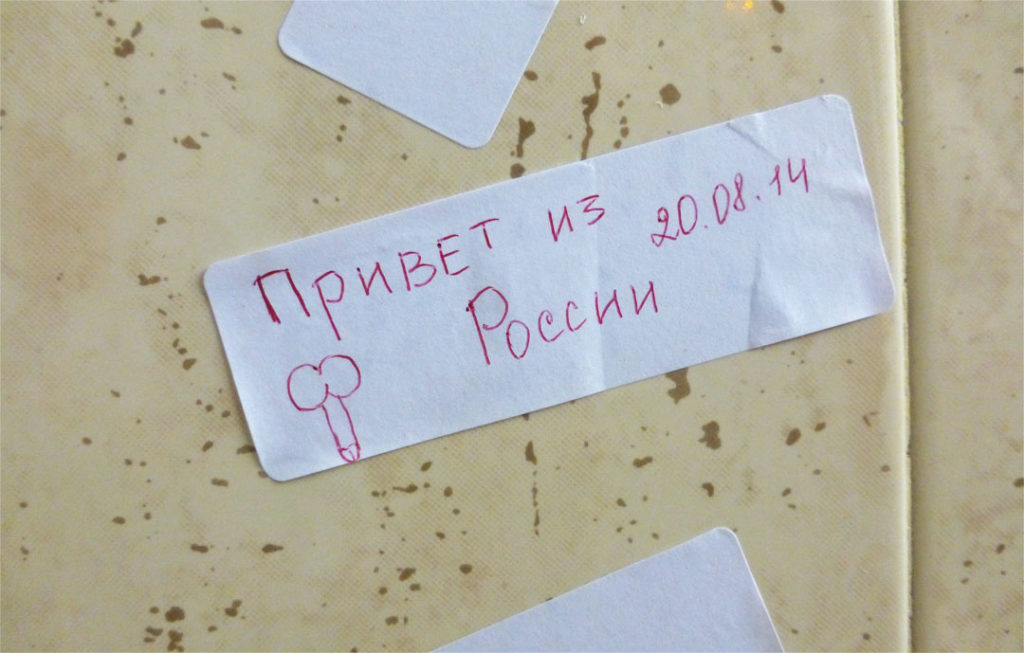 Привет из 20.08.14
России